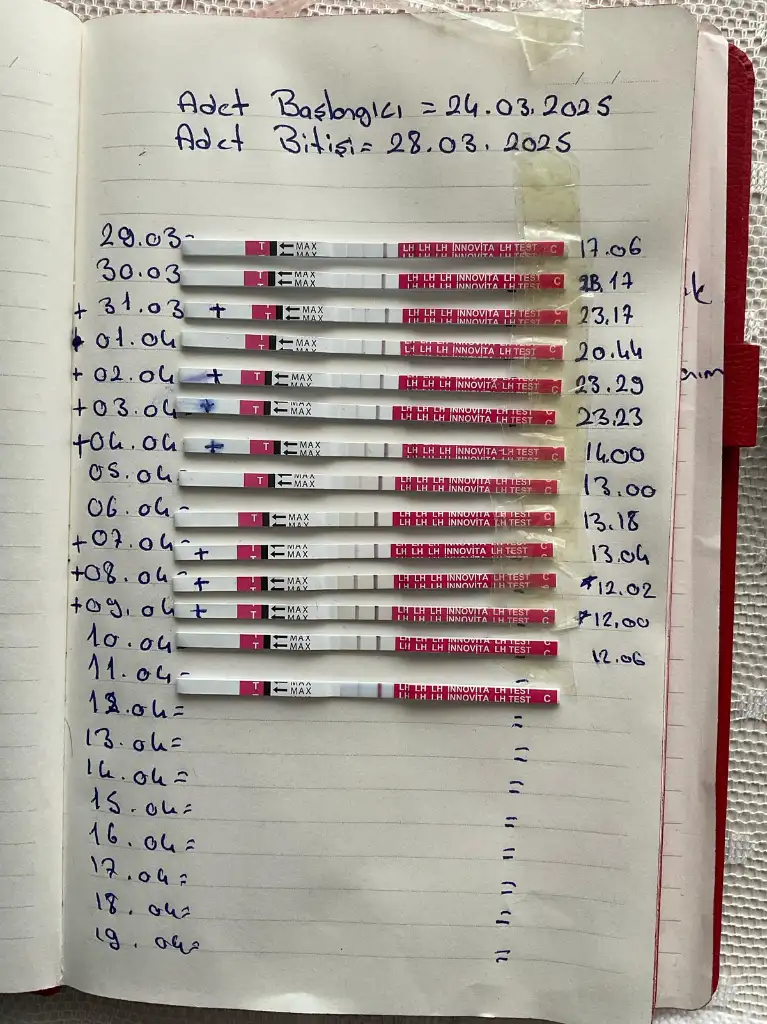 Adet Başlangıcı = 24.03.2025
Adet Bitişi = 28.03.2025
29.03- T MAX MAX LH LH LH İNNOVİTA LH TEST C 17.06
30.03 T MAX MAX LH LH LH İNNOVİTA LH TEST C 23.17
+ 31.03 + T MAX MAX LH LH LH İNNOVİTA LH TEST C 23.17
+ 01.04 T MAX MAX LH LH LH İNNOVİTA LH TEST C 20.44
+ 02.04 + T MAX MAX LH LH LH İNNOVİTA LH TEST C 23.29
+ 03.04 + T MAX MAX LH LH LH İNNOVİTA LH TEST C 23.23
+ 04.04 + T MAX MAX LH LH LH İNNOVİTA LH TEST C 14.00
05.04 T MAX MAX LH LH LH İNNOVİTA LH TEST C 13.00
06.04 - T MAX MAX LH LH LH İNNOVİTA LH TEST C 13.18
+ 07.04 - + T MAX MAX LH LH LH İNNOVİTA LH TEST C 13.04
+ 08.04 - + T MAX MAX LH LH LH İNNOVİTA LH TEST C *12.02
+ 09.04 + T MAX MAX LH LH LH İNNOVİTA LH TEST C *12.00
10.04 - T MAX MAX LH LH LH İNNOVİTA LH TEST C 12.06
11.04 - T MAX MAX LH LH LH İNNOVİTA LH TEST C "
12.04= "
13.04= "
14.04= "
15.04= "
16.04= "
17.04= "
18.04= "
19.04= "